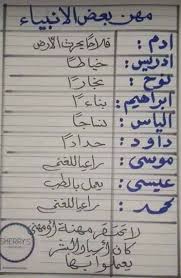 مهن بعض الأنبياء
ادم : فلاحاً يحرث الأرض
ادريس : خياطاً
نوح : نجاراً
ابراهيم : بناءاً
الياس : نساجاً
داود : حداداً
موسى : راعيا للغنم
عيسى : يعمل بالطب
محمد : راعيا للغنم
لا تحتقر مهنة أو مهني
كان أنبياء البشر
يعملوا بها
SHERRY'S